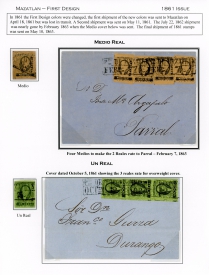 MAZATLAN – FIRST DESIGN 1861 ISSUE
In 1861 the First Design colors were changed, the first shipment of the new colors was sent to Mazatlan on
April 18, 1861 but was lost in transit. A Second shipment was sent on May 11, 1861. The July 22, 1862 shipment
was nearly gone by February 1863 when the Medio cover below was sent. The final shipment of 1861 stamps
was on May 10, 1863.
MEDIO REAL
Medio
Parral
Four Medios to make the 2 Reales rate to Parral – February 7, 1863
UN REAL
Cover dated October 5, 1861 showing the 3 reales rate for overweight cover.
Un Real
Durango